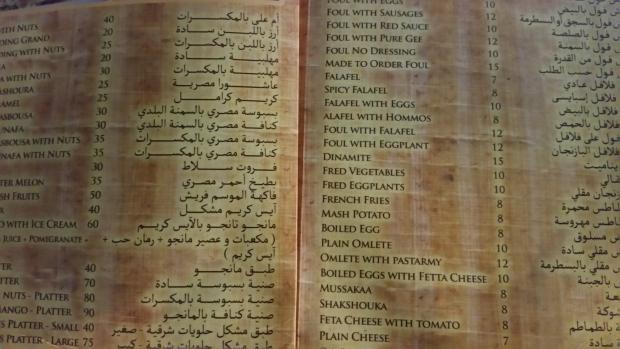 WITH NUTS 40 أم على بالمكسرات
DING GRAND 20 أرز باللبن سادة
DING WITH NUTS 30 أرز باللبن بالمكسرات
20 مهلبية سادة
WITH NUTS 30 مهلبية بالمكسرات
ASHOURA 25 عاشورا مصرية
AMEL 25 كريم كرامل
ASBOUSA 30 بسبوسة مصري بالسمنة البلدي
UNAFA 30 كنافة مصري بالسمنة البلدي
ASBOUSA WITH NUTS 35 بسبوسة مصري بالمكسرات
UNAFA WITH NUTS 35 كنافة مصري بالمكسرات
30 فروت سلاط
TER MELON 35 بطيخ أحمر مصري
SH FRUITS 50 فاكهة الموسم فريش
40 آيس كريم مشكل
O WITH ICE CREAM 60 مانجو تانجو بالآيس كريم
JUICE + POMIGRANATE + ( مكعبات و عصير مانجو + رمان حب +
آيس كريم )
TER 40 طبق مانجو
TTER 70 صنية بسبوسة سادة
NUTS - PLATTER 80 صنية بسبوسة بالمكسرات
MANGO - PLATTER 90 صنية كنافة بالمانجو
S PLATTER - SMALL 40 طبق مشكل حلويات شرقية - صغير
S PLATTER - LARGE 75 طبق مشكل حلويات شرقية - كبير
FOUL WITH EGGS 10 فول بالبيض
FOUL WITH SAUSAGES 12 فول بالسجق أو البسطرمة
FOUL WITH RED SAUCE 10 فول بالصلصة
FOUL WITH PURE GEF 12 فول بالسمنة
FOUL NO DRESSING 10 فول من القدرة
MADE TO ORDER FOUL 15 فول حسب الطلب
FALAFEL 7 فلافل عادي
SPICY FALAFEL 8 فلافل
FALAFEL WITH EGGS 10 فلافل بالبيض
ALAFEL WITH HOMMOS 8 فلافل بالحمص
FOUL WITH FALAFEL 12 فول على فلافل
FOUL WITH EGGPLANT 12 البازنجان
DINAMITE 15
FRED VEGETABLES 10
FRED EGGPLANTS 10 مقلي
FRENCH FRIES 8 محمرة
MASH POTATO 8 مهروسة
BOILED EGG 8 مسلوق
PLAIN OMLETE 8 مقلي سادة
OMLETE WITH PASTARMY 12 مقلي بالبسطرمة
BOILED EGGS WITH FETTA CHEESE 10 بالجبنة
MUSSAKAA 8
SHAKSHOUKA 8
FETA CHEESE WITH TOMATO 8 بالطماطم
PLAIN CHEESE 7 سادة